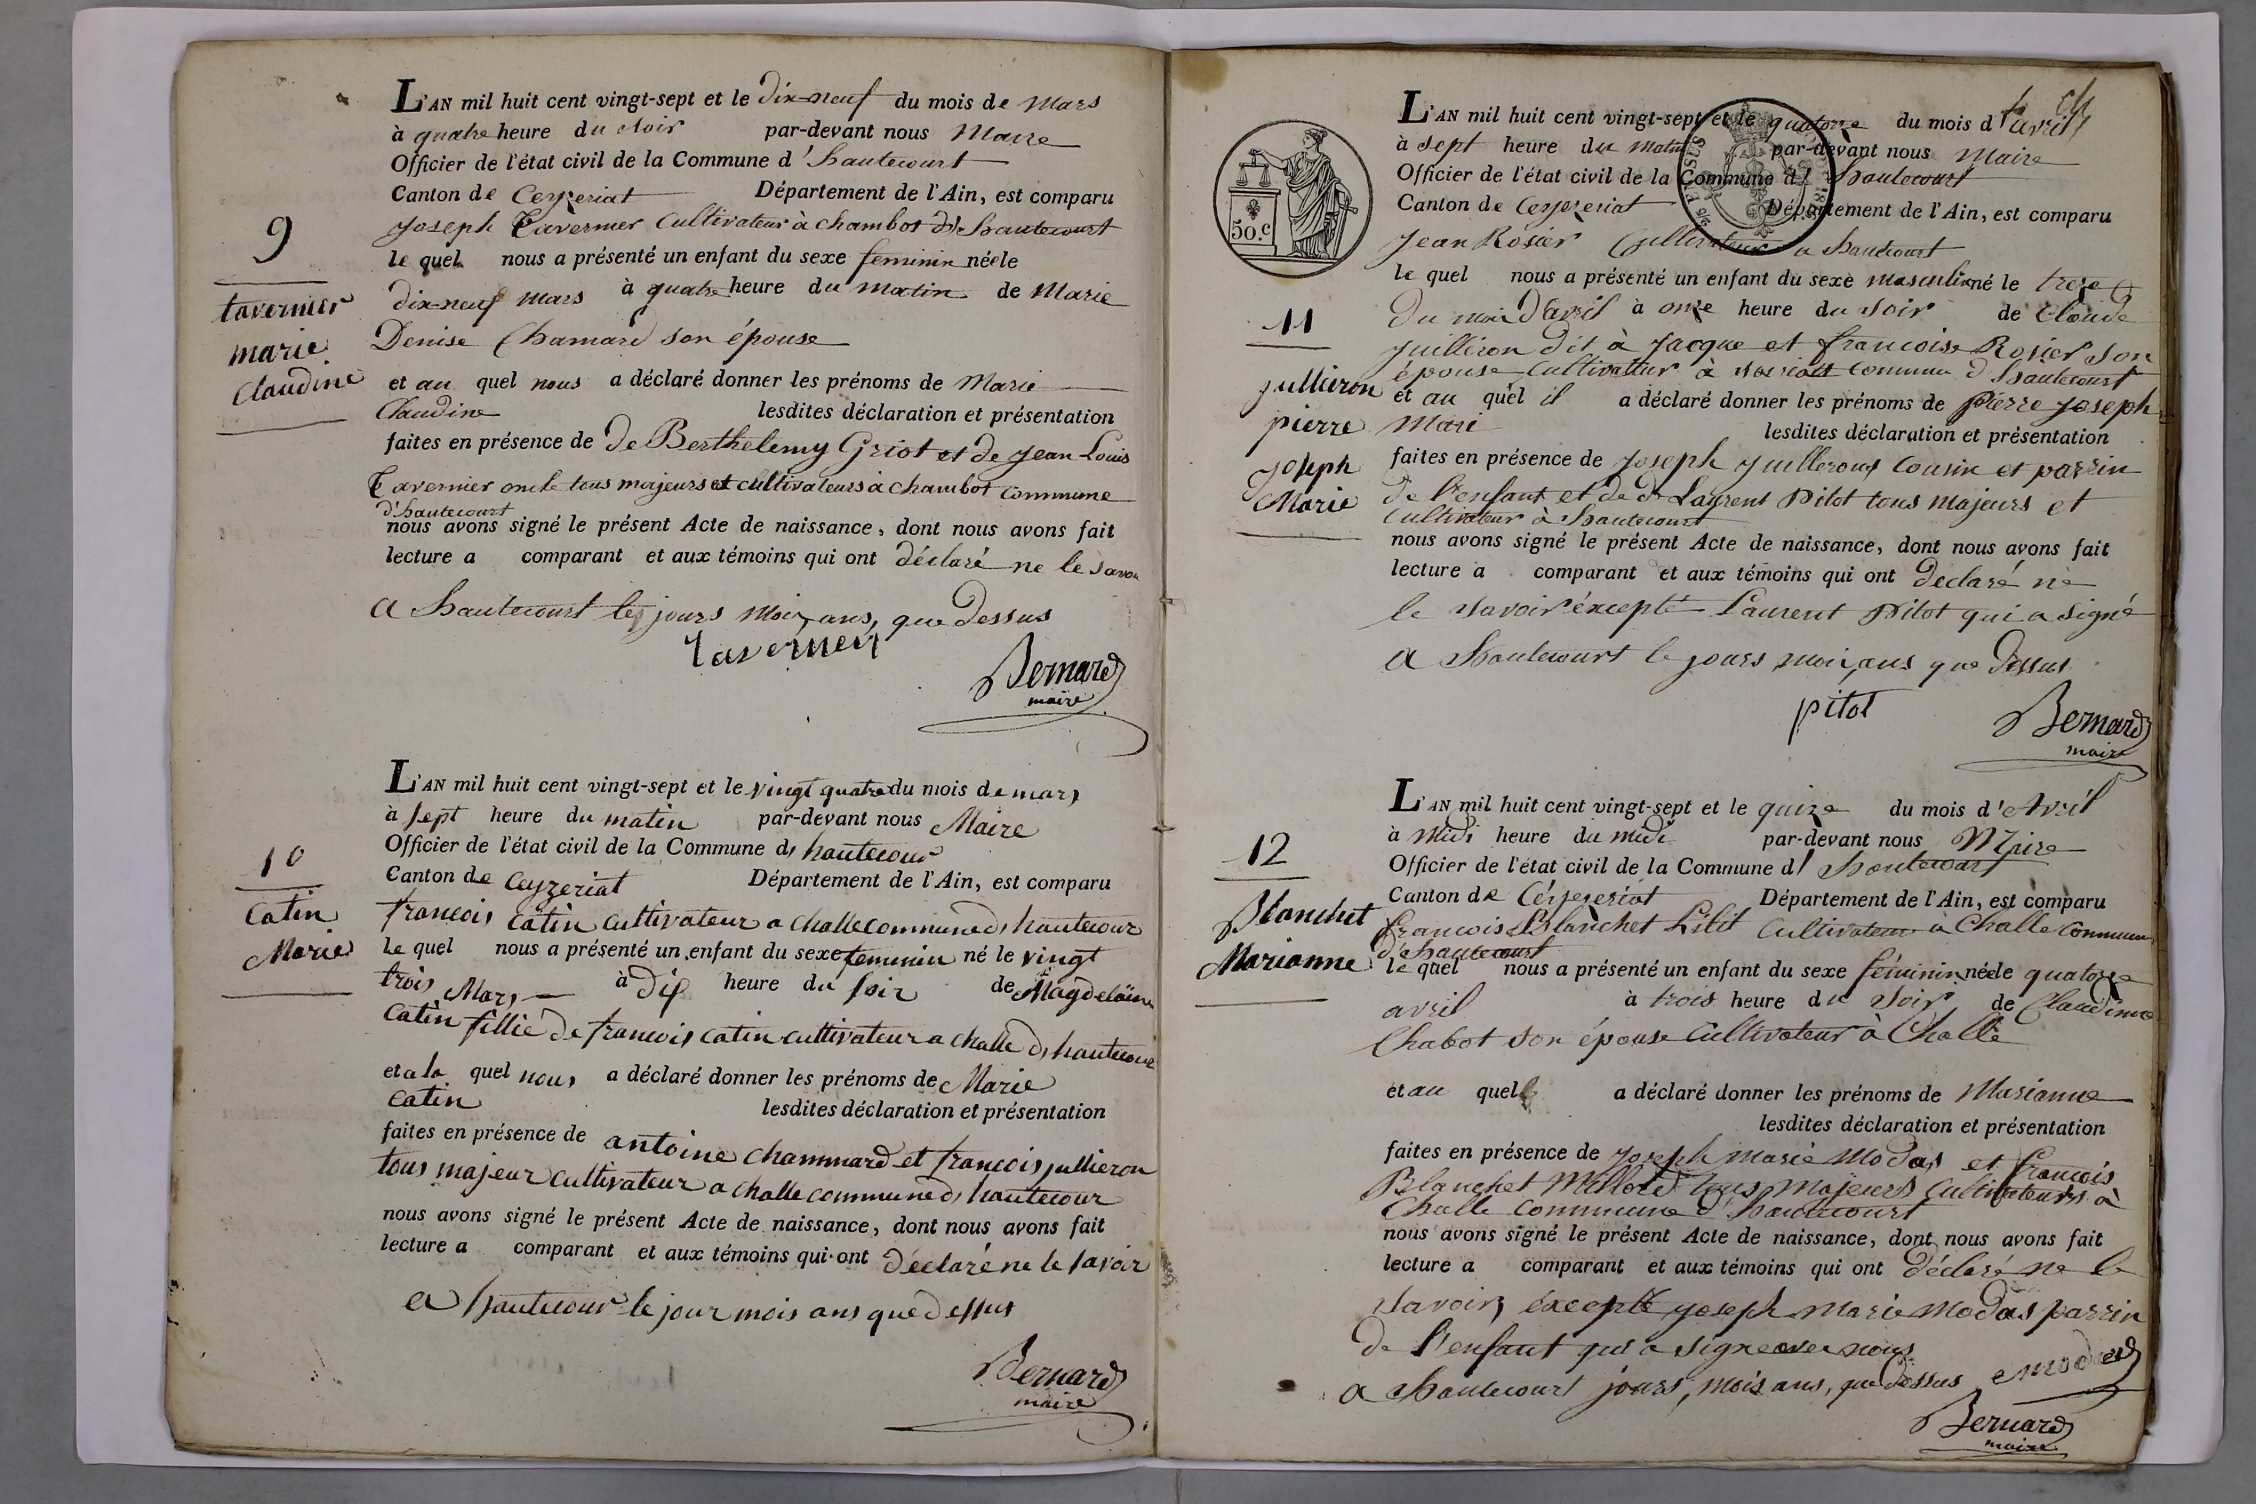 L'AN mil huit cent vingt-sept et le dix-neuf du mois de Mars
à quatre heure du soir par-devant nous Maire
Officier de l'état civil de la Commune d'hautecourt
Canton de Ceyzeriat Département de l'Ain, est comparu
Joseph Tavernier Cultivateur à chambot d'hautecourt
le quel nous a présenté un enfant du sexe feminin née le
dix-neuf mars à quatre heure du matin de Marie
Denise Chamard son épouse
et au quel nous a déclaré donner les prénoms de Marie
Claudine lesdites déclaration et présentation
faites en présence de de Berthelemy Griot et de jean Louis
Tavernier oncle tous majeurs et cultivateurs à chambot commune
d'hautecourt
nous avons signé le présent Acte de naissance, dont nous avons fait
lecture a comparant et aux témoins qui ont déclaré ne le savoir
a hautecourt les jours mois, ans, que dessus
tavernier
Bernard
maire
9
tavernier
marie
Claudine
L'AN mil huit cent vingt-sept et le vingt quatre du mois de mars
à sept heure du matin par-devant nous Maire
Officier de l'état civil de la Commune d, hautecour
Canton de Ceyzeriat Département de l'Ain, est comparu
francois catin cultivateur a challe commune d, hautecour
le quel nous a présenté un enfant du sexe feminin né le vingt
trois Mars à dix heure du soir de Magdelaine
catin fillie de francois catin cultivateur a challe d, hautecour
et a la quel nous a déclaré donner les prénoms de Marie
catin lesdites déclaration et présentation
faites en présence de antoine chammard et francois jullieron
tous majeur cultivateur a challe commune d, hautecour
nous avons signé le présent Acte de naissance, dont nous avons fait
lecture a comparant et aux témoins qui ont déclaré ne le savoir
a hautecour le jour mois ans que dessus
Bernard
maire
10
Catin
Marie
L'AN mil huit cent vingt-sept et le quatorze du mois d'avril
à sept heure du matin par-devant nous Maire
Officier de l'état civil de la Commune d'hautecourt
Canton de Ceyzeriat Département de l'Ain, est comparu
Jean Rosier Cultivateur a hautecourt
le quel nous a présenté un enfant du sexe masculin né le treze
du mois d'avril à onze heure du soir de Claude
juilliron dit à Jacque et francoise Rosier son
épouse cultivateur à commune d'hautecourt
et au quel il a déclaré donner les prénoms de pierre joseph
Marie lesdites déclaration et présentation
faites en présence de joseph juilleron cousin et parrin
de l'enfant et de Laurent Pitot tous majeurs et
cultivateur à hautecourt
nous avons signé le présent Acte de naissance, dont nous avons fait
lecture a comparant et aux témoins qui ont declaré ne
le savoir éxcepté Laurent pitot qui a signé
a hautecourt le jours mois, ans que dessus
pitot
Bernard
maire
50.c
11
julliron
pierre
joseph
Marie
L'AN mil huit cent vingt-sept et le quize du mois d'Avril
à Midi heure du midi par-devant nous Maire
Officier de l'état civil de la Commune d'hautecourt
Canton de Ceyzeriat Département de l'Ain, est comparu
francois Blanchet Cultivateur à Challe Commune
d'hautecourt
le quel nous a présenté un enfant du sexe féminin née le quatorze
avril à trois heure du soir de Claudine
Chabot son épouse Cultivateur à Challe
et au quel a déclaré donner les prénoms de Marianne
lesdites déclaration et présentation
faites en présence de joseph marie Modas et francois
Blanchet tous majeurs cultivateurs à
Challe commune d'hautecourt
nous avons signé le présent Acte de naissance, dont nous avons fait
lecture a comparant et aux témoins qui ont déclaré ne le
savoir, éxcepté joseph marie modas parrin
de l'enfant qui a signe avec nous
a hautecourt jours, mois ans, que dessus
Bernard
maire
12
Blanchet
Marianne